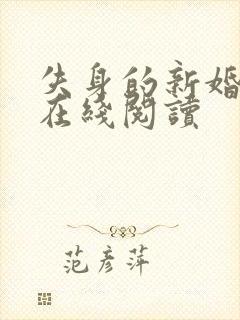 失身的新婚
在綫閱讀
范彥萍